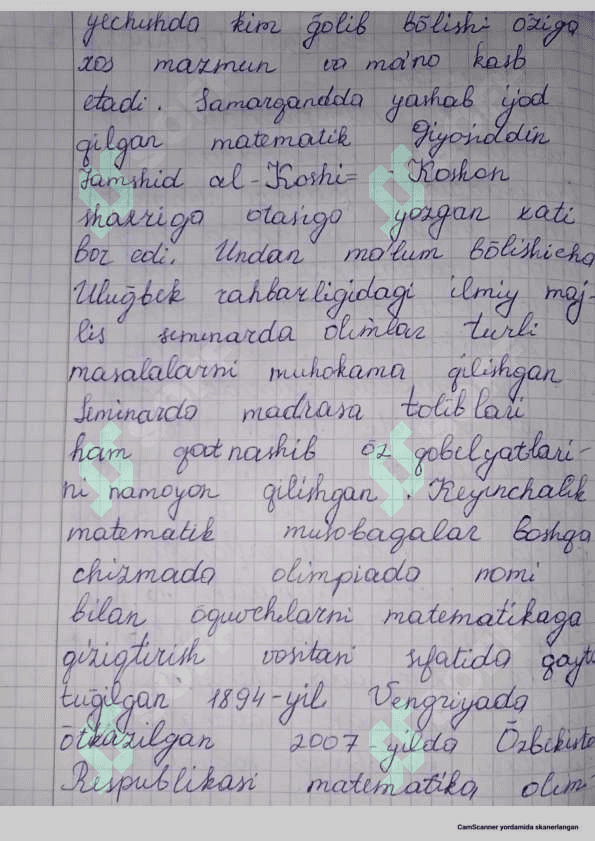 yechishda kim ḡolib bōlishi ōziga
xos mazmun va ma'no kasb
etadi. Samarqandda yashab ijod
qilgan matematik Giyosiddin
Jamshid al-Koshi= Koshon
shaxriga otasiga yozgan xati
bor edi. Undan ma'lum bōlishicha
Uluḡbek rahbarligidagi ilmiy maj-
lis seminarda olimlar turli
masalalarni muhokama qilishgan
Seminarda madrasa toliblari
ham qatnashib ōz qobelyatlari-
ni namoyon qilishgan. Keyinchalik
matematik musobaqalar boshqa
chizmada olimpiada nomi
bilan ōquvchilarni matematikaga
qiziqtirish vositasi sifatida qayta
tuḡilgan 1894-yil Vengriyada
ōtkazilgan 2007-yilda Ōzbekisto
Respublikasi matematika olim
CamScanner yordamida skanerlangan